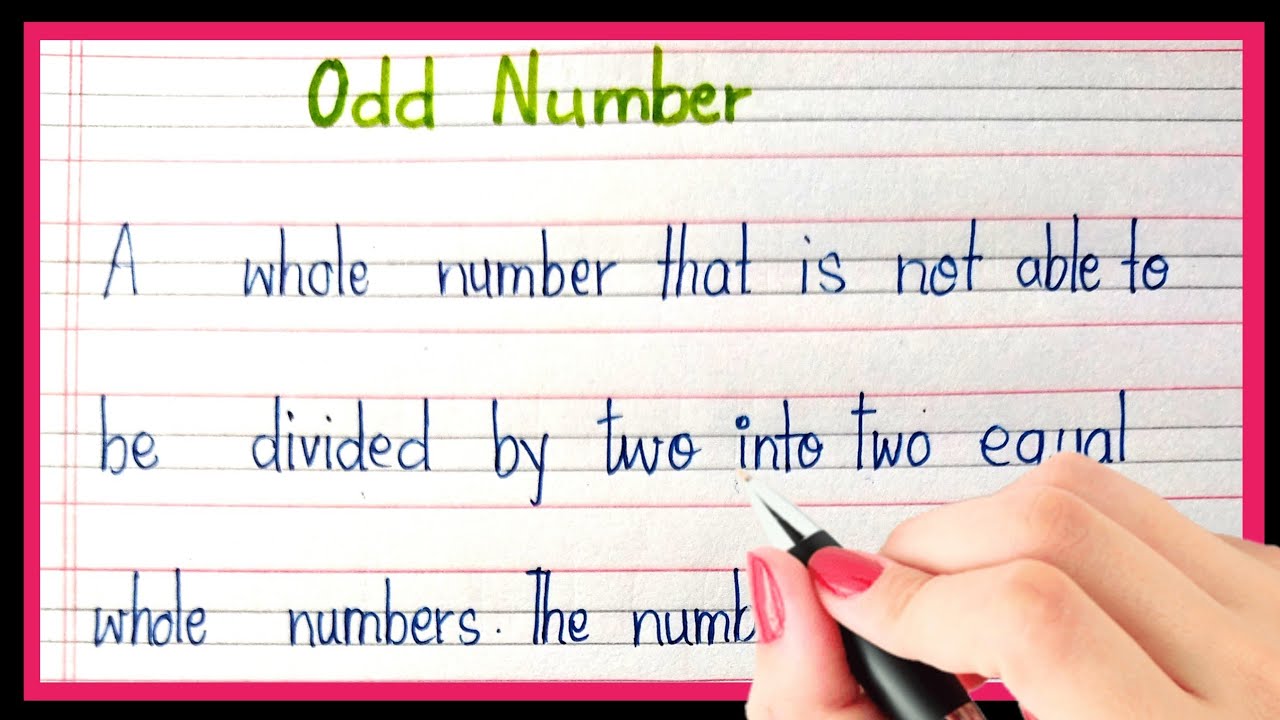 Odd Number
A whole number that is not able to
be divided by two into two equal
whole numbers. The